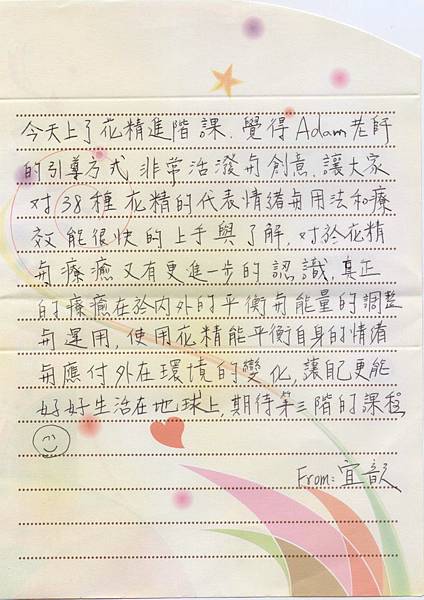 今天上了花精進階課、覺得Adam老師
的引導方式非常活潑与創意、讓大家
对38種花精的代表情緒与用法和療
效能很快的上手與了解，对於花精
与療癒又有更進一步的認識，真正
的療癒在於內外的平衡与能量的調整
与運用，使用花精能平衡自身的情緒
与應付外在環境的變化，讓自己更能
好好生活在地球上，期待第三階的課程
From：宜歆